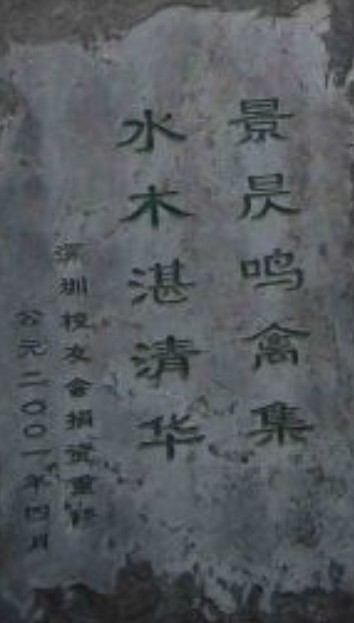 景昃鸣禽集
水木湛清华
深圳校友会捐资重修
公元二〇〇一年四月